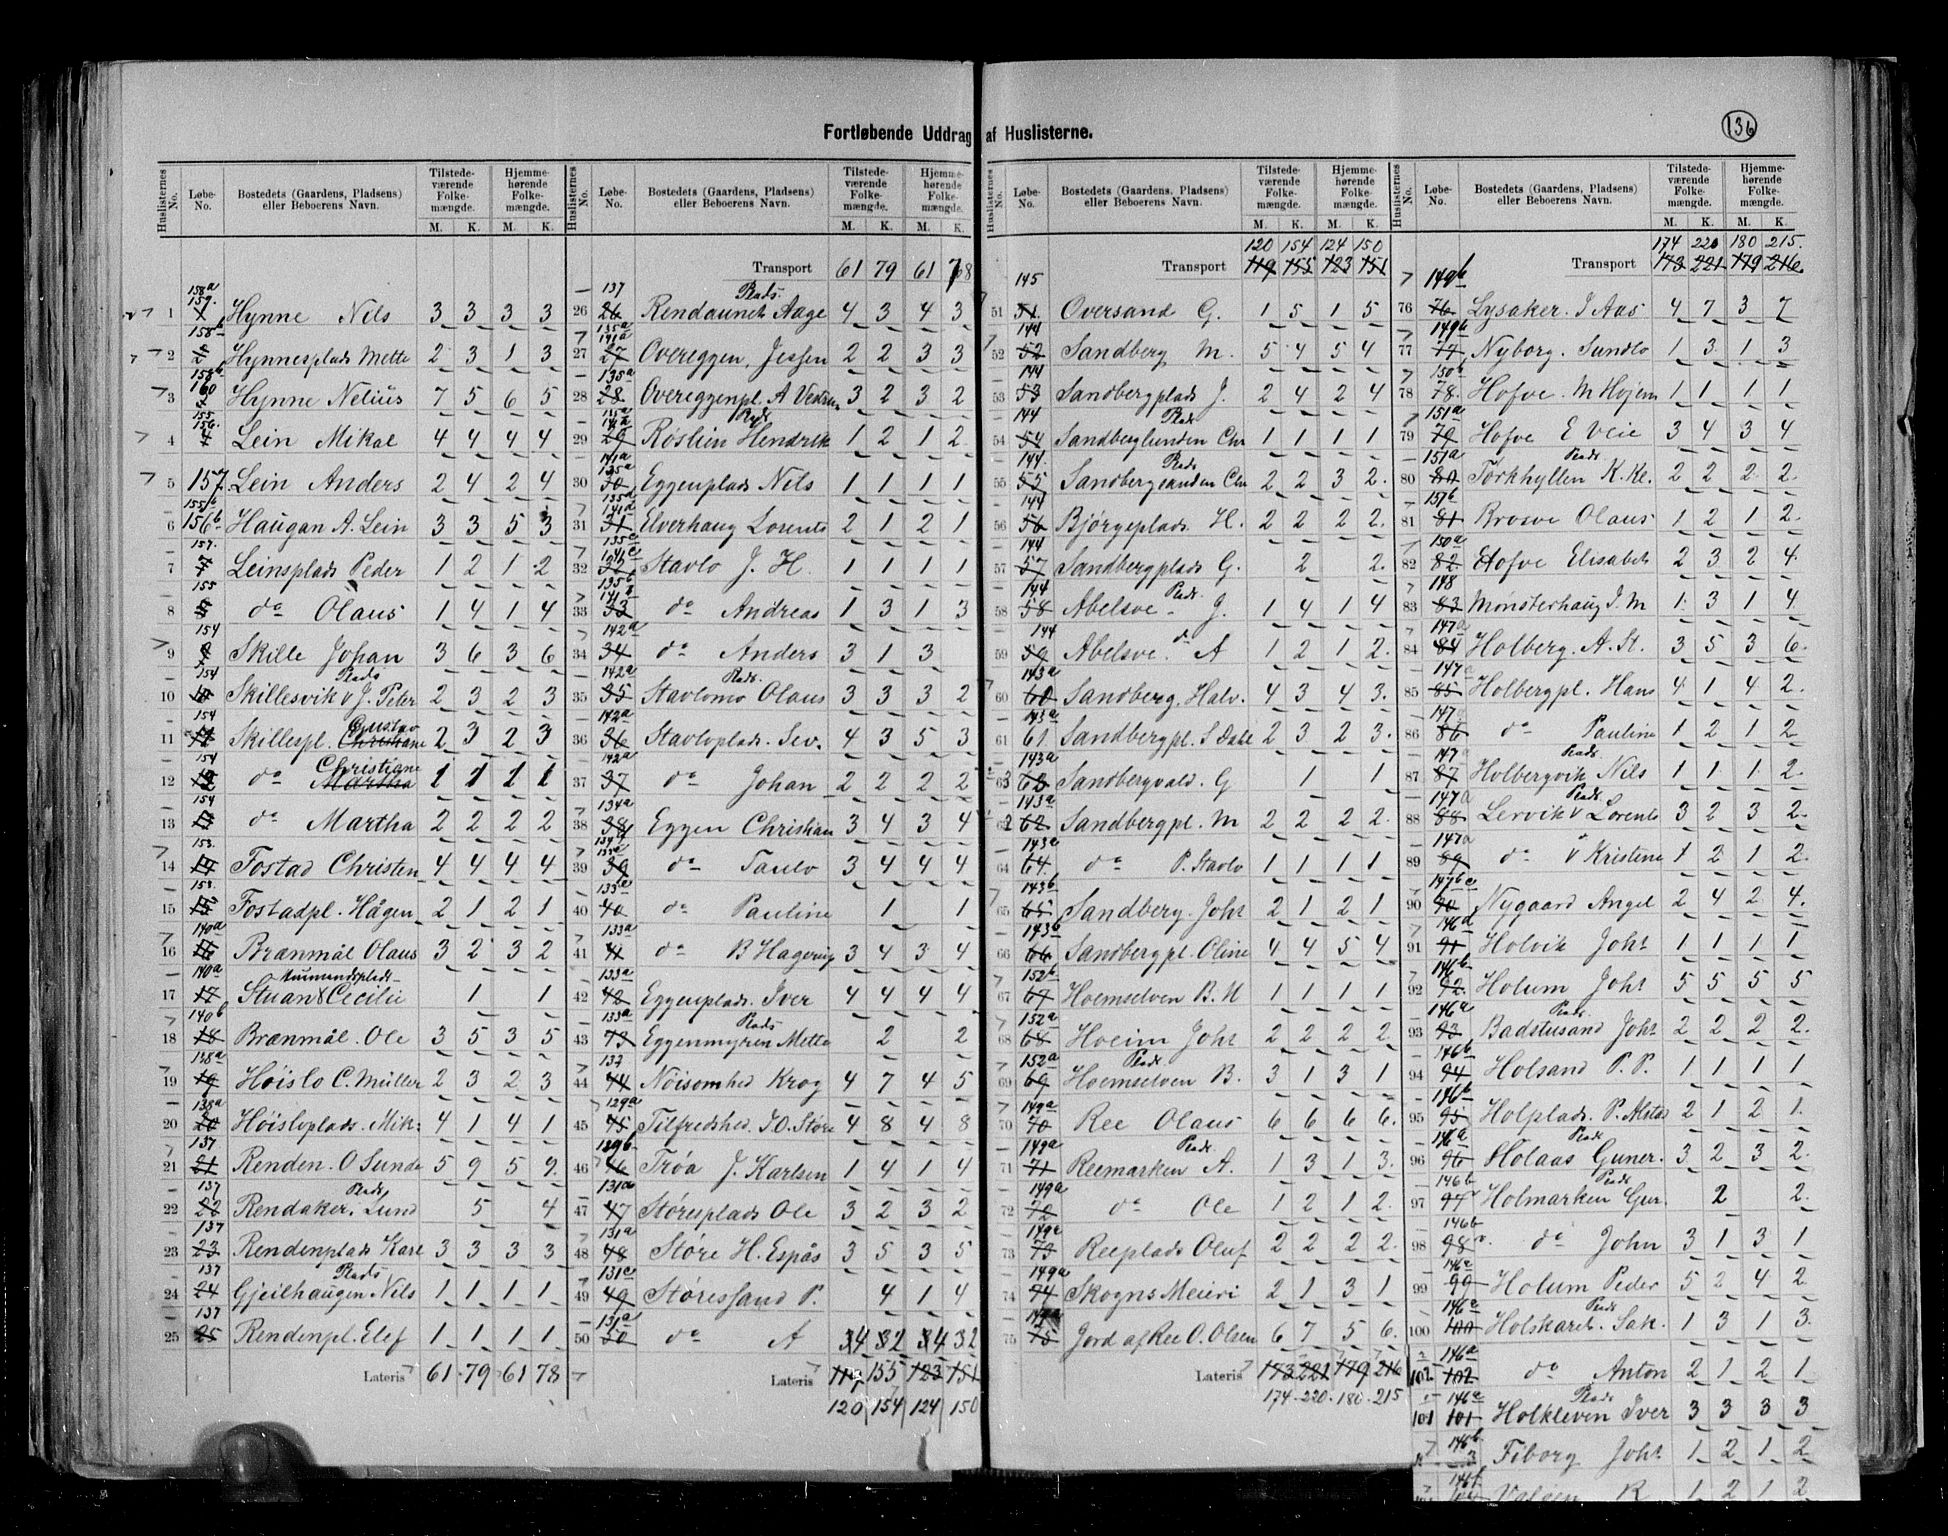 136
Fortløbende Uddrag af Huslisterne.
Huslisternes No. Løbe-No. Bostedets (Gaardens, Pladsens) eller Beboerens Navn. Tilstedeværende Folkemængde. M. K. Hjemmehørende Folkemængde. M. K.
1 Hynne Nils 3 3 3 3
2 Hynnesplads Mette 2 3 1 3
3 160 Hynne Nelius 7 5 6 5
4 156. Lein Mikal 4 4 4 4
5 157 Lein Anders 2 4 2 4
6 156b Haugan A. Lein 3 3 5 3
7 157. Leinsplads Peder 1 2 1 2
8 155 do Olaus 1 4 1 4
9 154 Skille Johan 3 6 3 6
10 154 Skillesvik v J. Peter Plads 2 3 2 3
11 154 Skillespl. Christiane Gustav 2 3 2 3
12 154 do Martha Christiane 1 1 1 1
13 154 do Martha 2 2 2 2
14 153. Fostad Christen 4 4 4 4
15 153. Fostadpl. Hågen 2 1 2 1
16 140a Brænmål Olaus 3 2 3 2
17 140a Stuan Cecilie 1 1
18 140b Brænmål. Ole 3 5 3 5
19 138a Høislo C. Müller 2 3 2 3
20 138a Høisloplads. Mik. 4 1 4 1
21 137 Renden. O Sunde 5 9 5 9
22 137 Rendaker. Lund Plads 5 4
23 137 Rendenplads Karl 3 3 3 3
24 137 Gjeilhaugen Nils Plads 1 1 1 1
25 137 Rendenpl. Elef 1 1 1 1
Lateris 61 79 61 78
Transport 61 79 61 78
26 137 Rendaunet Aage Plads 4 3 4 3
27 Overeggen, Jessen 2 2 3 3
28 135a Overeggenpl. A 3 2 3 2
29 Røstien Hendrik Plads 1 2 1 2
30 135a Eggenplads Nils 1 1 1 1
31 Elverhaug Lorents 2 1 2 1
32 Stavlo J. H. 1 1 1 1
33 do Andreas 1 3 1 3
34 142a do Anders 3 1 3
35 142a Stavlomo Olaus Plads 3 3 3 2
36 142a Stavloplads. Sev. 4 3 5 3
37 142a do Johan 2 2 2 2
38 134a Eggen Christian 3 4 3 4
39 do Paulo 3 4 4 4
40 133a do Pauline 1 1
41 133a do B Hagerup 3 4 3 4
42 133a Eggenplads. Iver 4 4 4 4
43 133a Eggenmyren Mette Plads 2 2
44 Nøisomhed Krog 4 7 4 5
45 129a Tilfredshed. J O. Støre 4 8 4 8
46 129b Trøa J. Karlsen 1 4 1 4
47 131a Støresplads Ole 3 2 3 2
48 131a Støre H. Espås 3 5 3 5
49 131c Støressand P. 4 1 4
50 131a do A
Lateris 119 155 123 151
120 154 124 150
120 154 124 150
Transport 119 155 123 151
51 145 Oversand G. 1 5 1 5
52 144 Sandberg M. 5 4 5 4
53 144 Sandbergplads J. 2 4 2 4
54 144 Sandberglunden Chr Plads 1 1 1 1
55 144. Sandbergsanden Chr Plads 2 2 3 2
56 144 Bjørgeplads. H. 2 2 2 2
57 144 Sandbergplads G. 2 2
58 144 Abelsve. J. Plads. 1 4 1 4
59 144 Abelsve. do A 1 2 1 2
60 143a Sandberg, Halv. 4 3 4 3
61 143a Sandbergpl. S Dahl 2 3 2 3
63 143a Sandbergvald. G 1 1
62 143a Sandbergpl. M 2 2 2 2
64 143a do P. Stavlo 1 1 1 1
65 143b Sandberg. Joht 2 1 2 1
66 143b Sandbergpl. Oline 4 4 5 4
67 152b Hoemselven B. 1 1 1 1
68 152a Hoeim Joht 2 2 2 2
69 152a Hoemselven B. Plads 3 1 3 1
70 149a Ree Olaus 6 6 6 6
71 149a Reemarken A. Plads. 1 3 1 3
72 149a do Ole 1 2 1 2
73 149a Reeplads Oluf 2 2 2 2
74 149a Skogns Meieri 2 1 3 1
75 Jord af Ree O. Olsen 6 7 5 6
Lateris 173 221 179 216
174 220 180 215
174 220 180 215.
Transport 173 221 179 216
76 149b Lysaker. J Aas 4 7 3 7
77 149b Nyborg. Sundlo 1 3 1 3
78 150a Hofve. M Hojem 1 1 1 1
79 151a Hofve E Veie 3 4 3 4
80 151a Torkhyllen K. Kl. Plads 2 2 2 2
81 Brosve Olaus 1 2 1 2
82 150a Hofve Elisabet 2 3 2 4
83 148 Mønsterhaug J. M 1 3 1 4
84 147a Holberg. A. St. 3 5 3 6
85 147a Holbergpl. Hans 4 1 4 2
86 147a do Pauline 1 2 1 2
87 147a Holbergvik Nils Plads 1 1 1 2
88 147a Lervik v Lorents Plads 3 2 3 2
89 147a do v Kristine 1 2 1 2
90 Nygaard Angel 2 4 2 4
91 146d Holvik Joht 1 1 1 1
92 146b Holum Joht 5 5 5 5
93 146a Badstusand Joht Plads. 2 2 2 2
94 146b Holsand P. P. 1 1 1 1
95 146b Holplads. P. Alstad 2 1 2 1
96 146a Holaas Guner. Plads 3 2 3 2
97 146b Holmarken Gur. Plads 2 2
98 146b do John 3 1 3 1
99 146a Holum Peder 5 2 4 2
100 146a Holskaret. Sak. Plads 1 3 1 3
102 146a do Anton 2 1 2 1
101 146a Holkleven Iver Plads 3 3 3 3
146b Fiborg Joht 1 2 1 2
146b R 1 2 1 2